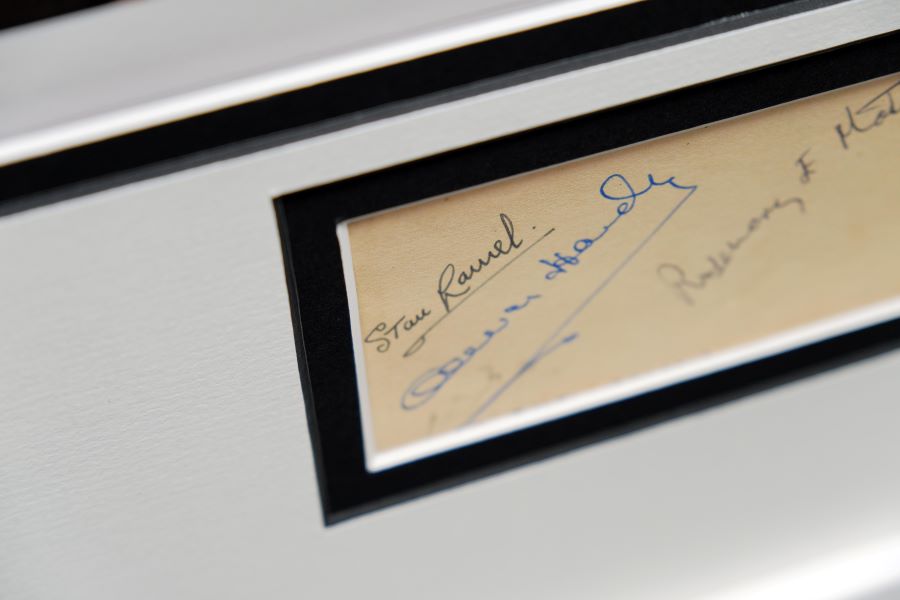 Stan Laurel.
Oliver Hardy
Rosemary &